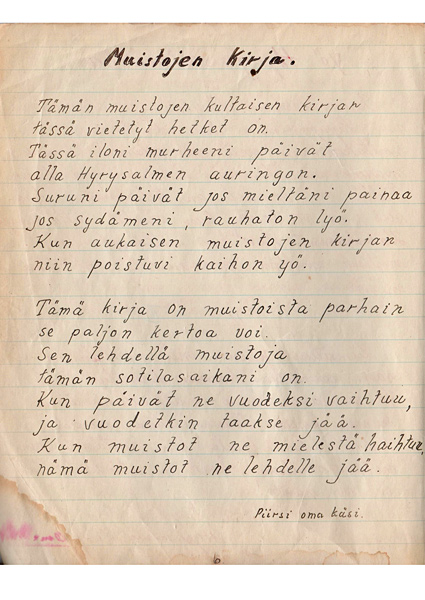 Muistojen Kirja.
Tämän muistojen kultaisen kirjan
tässä vietetyt hetket on.
Tässä iloni murheeni päivät
alla Hyrysalmen auringon.
Suruni päivät jos mieltäni painaa
jos sydämeni, rauhaton lyö.
Kun aukaisen muistojen kirjan
niin poistuvi kaihon yö.
Tämä kirja on muistoista parhain
se paljon kertoa voi.
Sen lehdellä muistoja
tämän sotilasaikani on.
Kun päivät ne vuodeksi vaihtuu,
ja vuodetkin taakse jää.
Kun muistot ne mielestä haihtuu,
nämä muistot ne lehdelle jää.
Piirsi oma käsi.